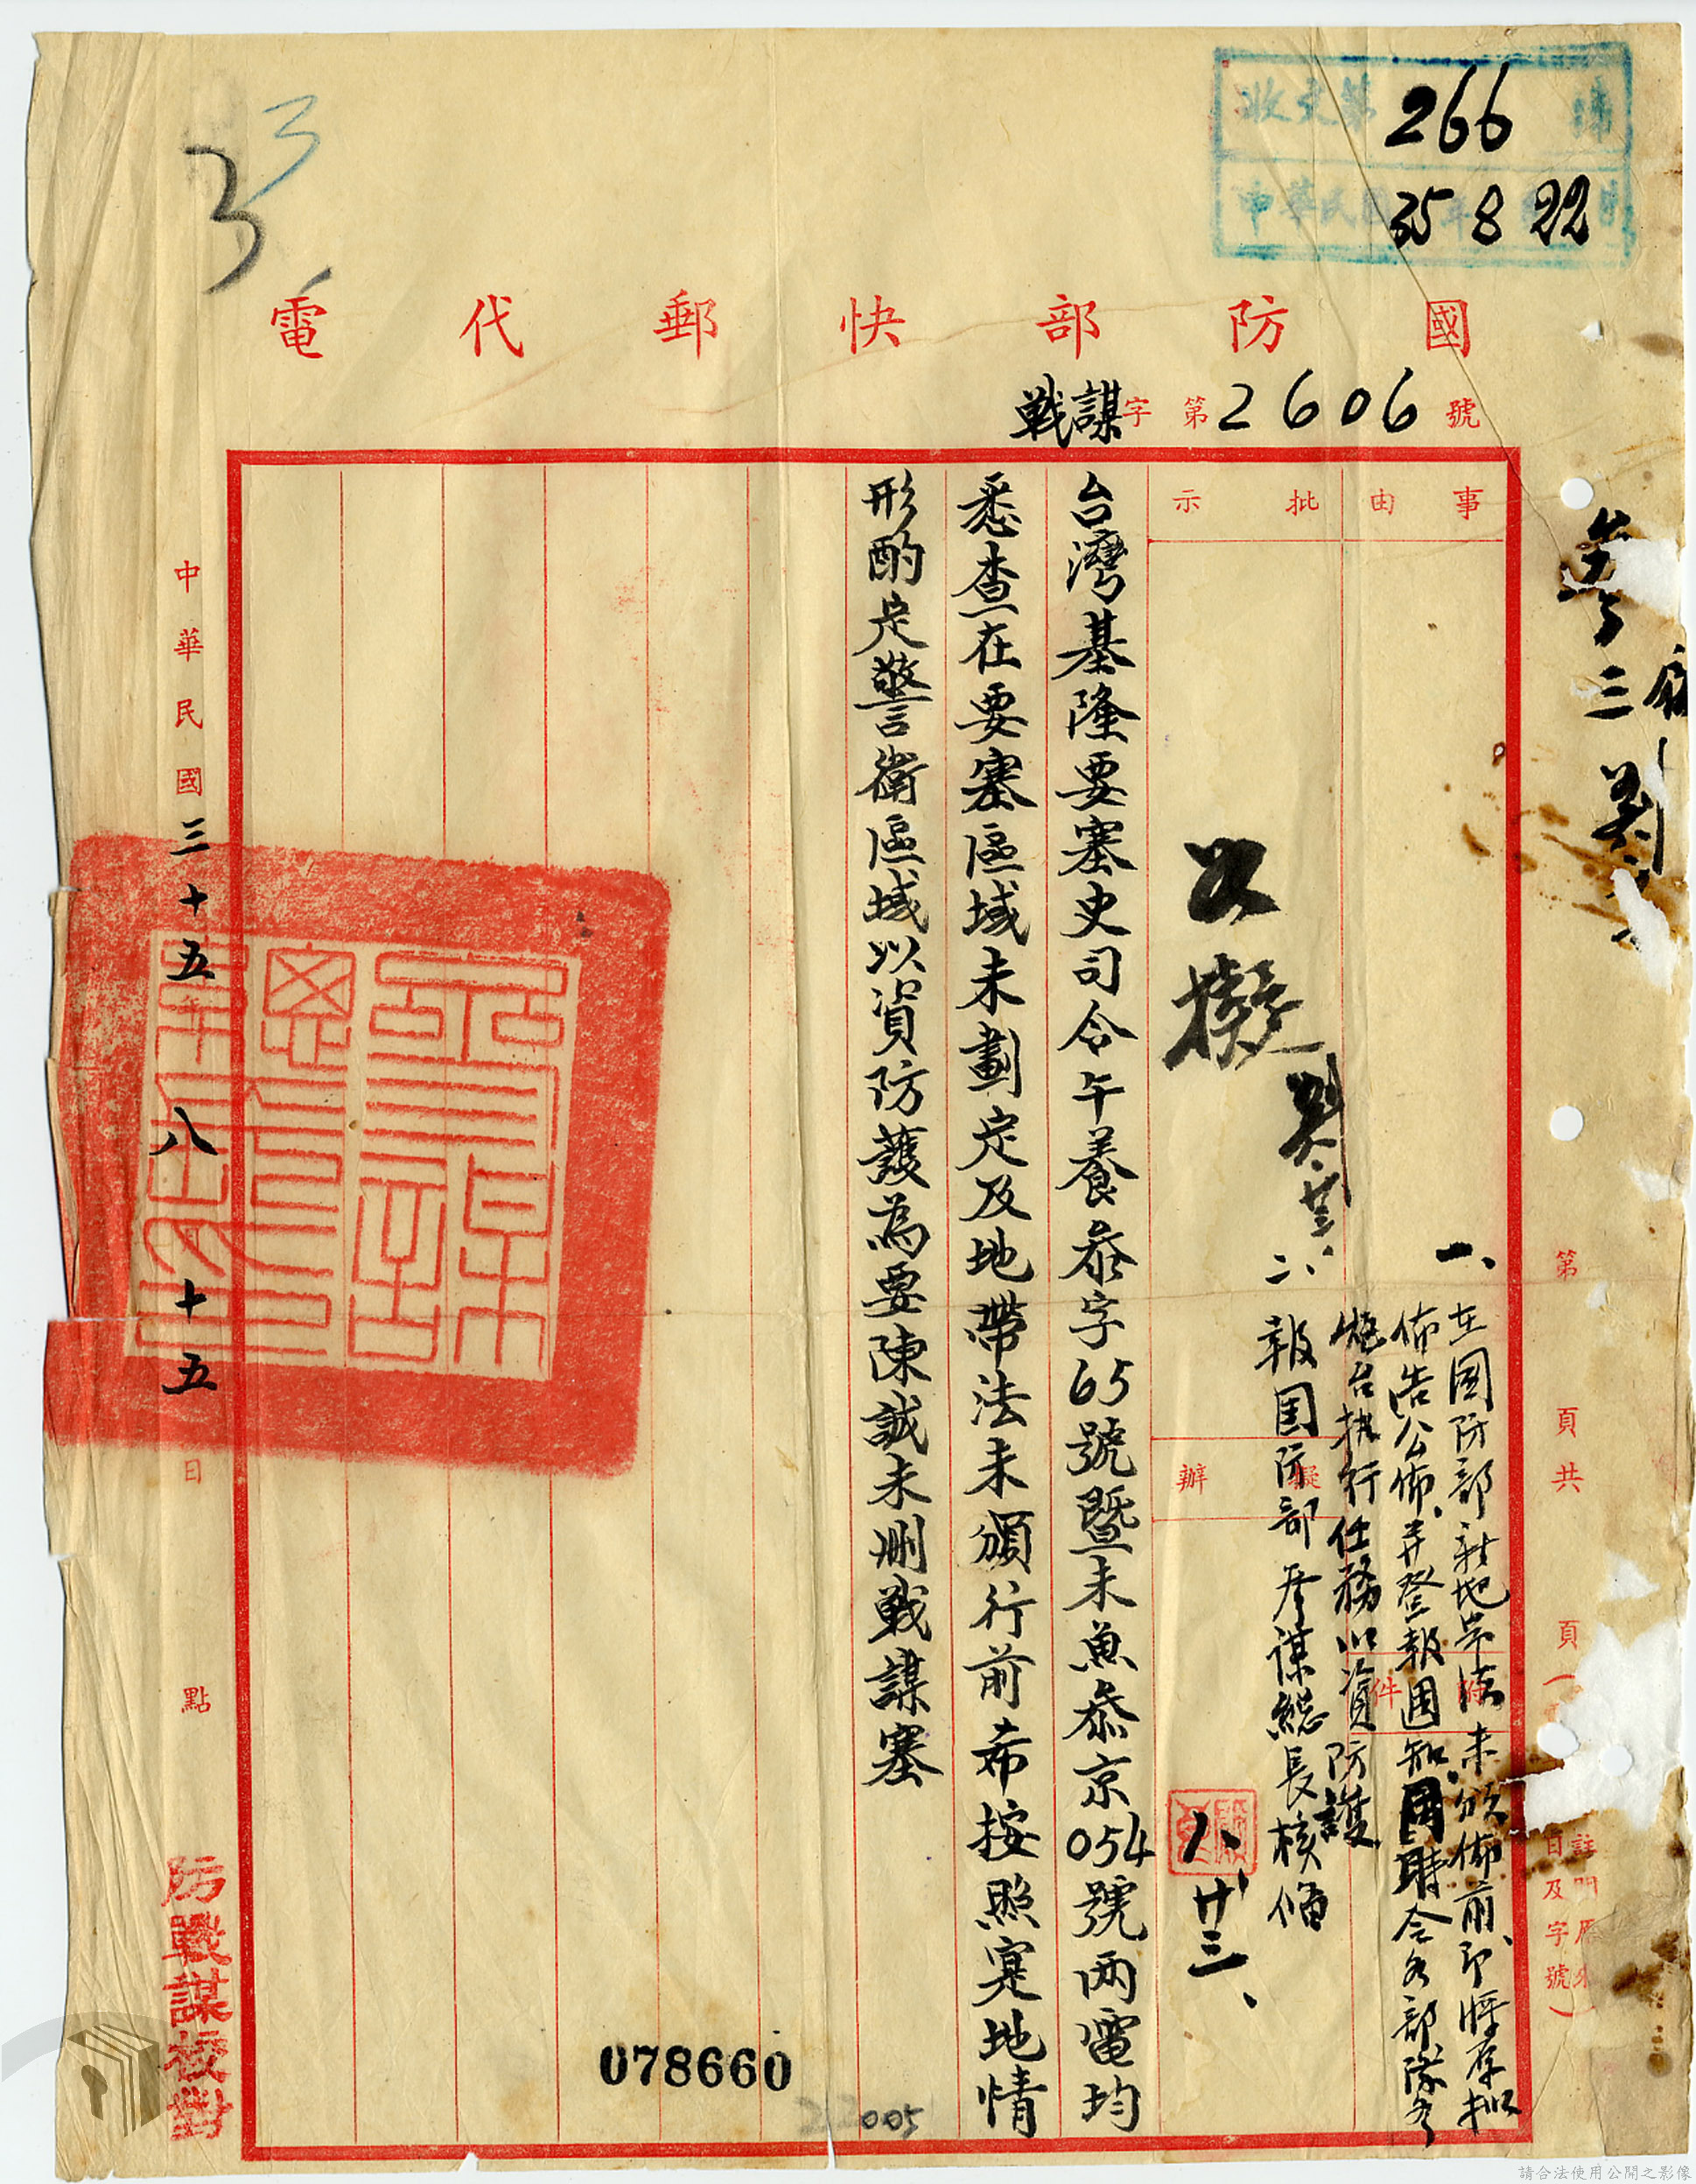 收文第266號
中華民國35年8月22日
33
國防部快郵代電
戰謀字第2606號
事由
批示
擬辦
附件
第 頁共 頁
如擬
一、在國防部新地帶法未頒佈前、即將原擬
佈告公佈、并登報週知、同時令各部隊各
炮台執行任務以資防護
二、報国防部參謀總長核備
八、廿三、
台灣基隆要塞史司令午養叅字65號暨未魚叅京054號両電均
悉查在要塞區域未劃定及地帶法未頒行前希按照寔地情
形酌定警衛區域以資防護為要陳誠未刪戰謀塞
中華民國三十五年八月十五日 點
防戰謀校對
078660
22005
請合法使用公開之影像